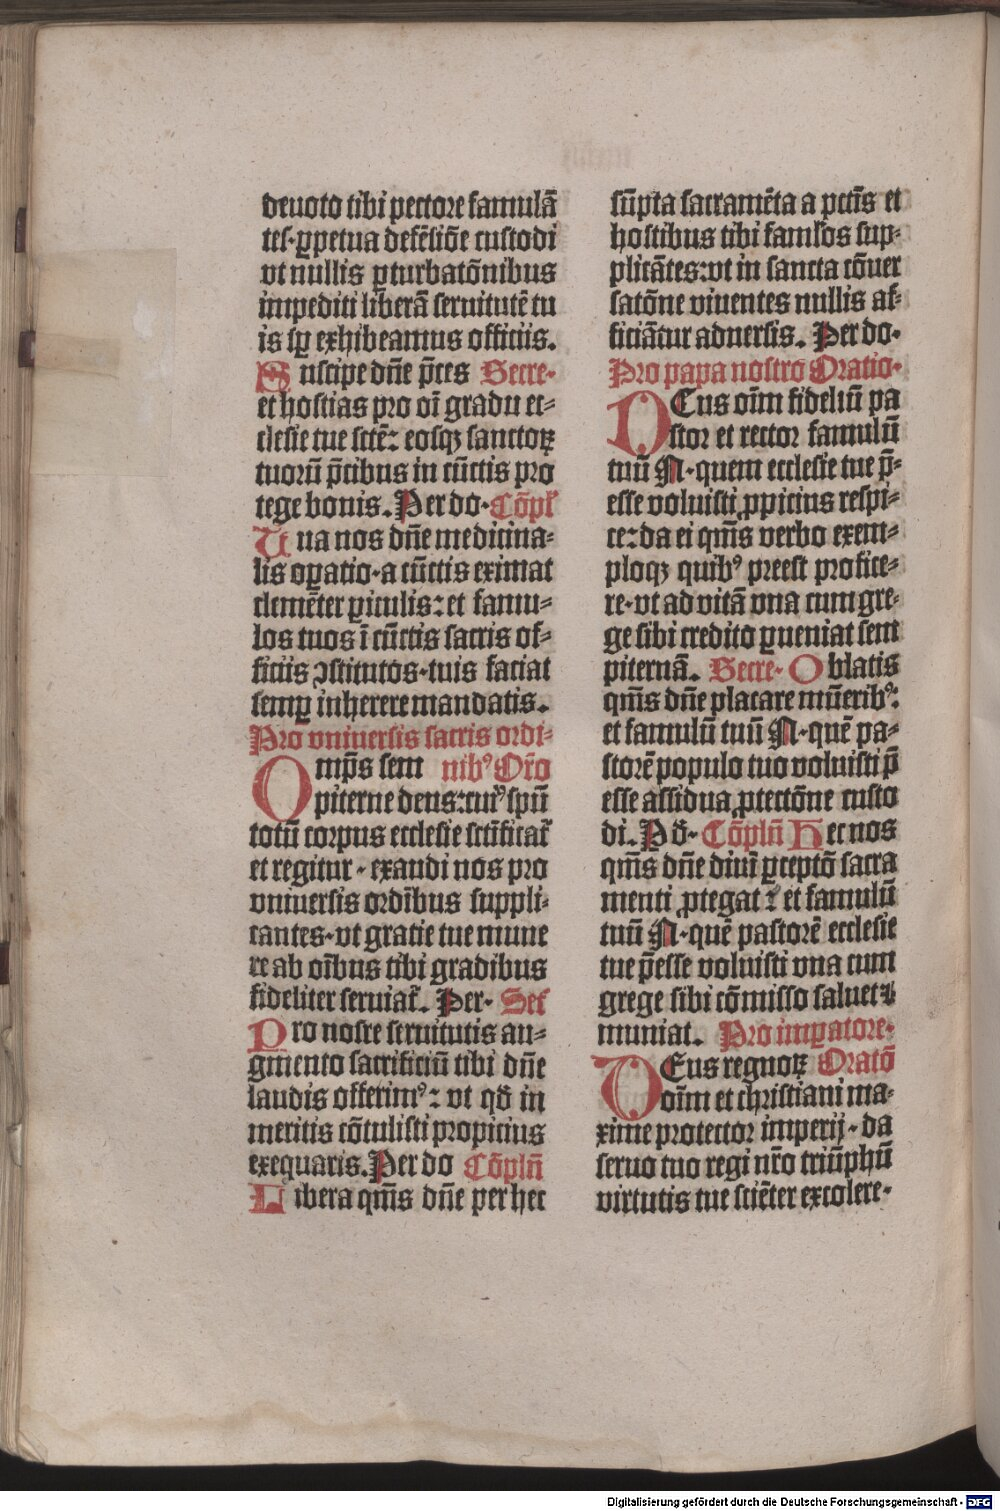 deuoto tibi pectore famulā
tes·ꝑpetua defēsiōe custodi
vt nullis ꝑturbatōnibus
impediti liberā seruitutē tu
is sꝑ exhibeamus officiis.
Suscipe dn̄e p̄ces Secre·
et hostias pro oī gradu ec⸗
clesie tue sctē: eosqꝫ sanctoꝝ
tuorū p̄cibus in cūctis pro
tege bonis. Per do· Cōpl̄
Una nos dn̄e medicina⸗
lis oꝑatio·a cūctis eximat
clemēter ꝑiculis: et famu⸗
los tuos ī cūctis sacris of⸗
ficiis ꝯstitutos·tuis faciat
semꝑ inherere mandatis.
Pro vniuersis sacris ordi⸗
Omp̄s sem nibꝰ Or̄o
piterne deus: cuiꝰ spū
totū corpus ecclesie sctīficat᷑
et regitur·exaudi nos pro
vniuersis ordībus suppli⸗
cantes·vt gratie tue mune
re ab oībus tibi gradibus
fideliter seruiat᷑. Per· Sec̄
Pro nostre seruitutis au⸗
gmento sacrificiū tibi dn̄e
laudis offerimꝰ: vt qd̄ in
meritis cōtulisti propicius
exequaris. Per do Cōpln̄
Libera qm̄s dn̄e per hec
sūpta sacramēta a pctīs et
hostibus tibi famlos sup⸗
plicātes: vt in sancta cōuer
satōne viuentes nullis af⸗
ficiātur aduersis. Per do·
Pro papa nostro Oratio·
DEus oīm fideliū pa
stor et rector famulū
tuū N·quem ecclesie tue p̄⸗
esse voluisti ꝓpicius respi⸗
ce: da ei qm̄s verbo exem⸗
ploqꝫ quibꝰ preest profice⸗
re·vt ad vitā vna cum gre⸗
ge sibi credito ꝑueniat sem
piternā. Secre· Oblatis
qm̄s dn̄e placare mūeribꝰ:
et famulū tuū N·quē pa⸗
storē populo tuo voluisti p̄
esse assidua ꝓtectōne custo
di. P d̄· Cōpln̄ Hec nos
qm̄s dn̄e diuī ꝑceptō sacra
menti ꝓtegat: et famulū
tuū N·quē pastorē ecclesie
tue p̄esse voluisti vna cum
grege sibi cōmisso saluet ⁊
muniat. Pro imꝑatore·
DEus regnoꝝ Oratō
oīm et christiani ma⸗
xime protector imperij·da
seruo tuo regi nr̄o triūphū
virtutis tue sciēter excolere·
Digitalisierung gefördert durch die Deutsche Forschungsgemeinschaft - DFG